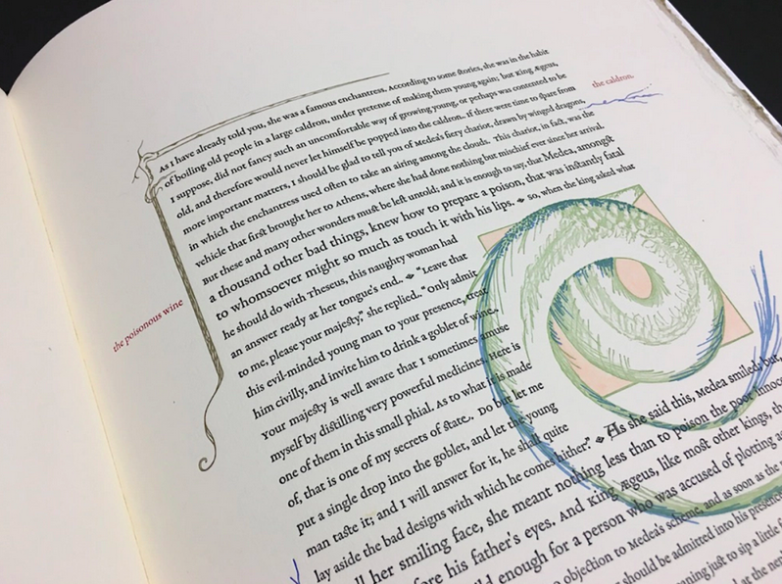 As I have already told you, she was a famous enchantress. According to some stories, she was in the habit
of boiling old people in a large caldron, under pretense of making them young again; but King Ægeus,
I suppose, did not fancy such an uncomfortable way of growing young, or perhaps was contented to be
old, and therefore would never let himself be popped into the caldron. If there were time to spare from
more important matters, I should be glad to tell you of Medea's fiery chariot, drawn by winged dragons,
in which the enchantress used often to take an airing among the clouds. This chariot, in fact, was the
vehicle that first brought her to Athens, where she had done nothing but mischief ever since her arrival.
But these and many other wonders must be left untold; and it is enough to say, that Medea, amongst
a thousand other bad things, knew how to prepare a poison, that was instantly fatal
to whomsoever might so much as touch it with his lips. So, when the king asked what
he should do with Theseus, this naughty woman had
an answer ready at her tongue's end. "Leave that
to me, please your majesty," she replied. "Only admit
this evil-minded young man to your presence, treat
him civilly, and invite him to drink a goblet of wine.
Your majesty is well aware that I sometimes amuse
myself by distilling very powerful medicines. Here is
one of them in this small phial. As to what it is made
of, that is one of my secrets of state. Do but let me
put a single drop into the goblet, and let the young
man taste it; and I will answer for it, he shall quite
lay aside the bad designs with which he comes hither." As she said this, Medea smiled; but,
all her smiling face, she meant nothing less than to poison the poor innoc
fore his father's eyes. And King Ægeus, like most other kings, th
ld enough for a person who was accused of plotting a
objection to Medea's scheme, and as soon as the
should be admitted into his presen
ing just to sip a little
at the
the caldron.
the poisonous wine